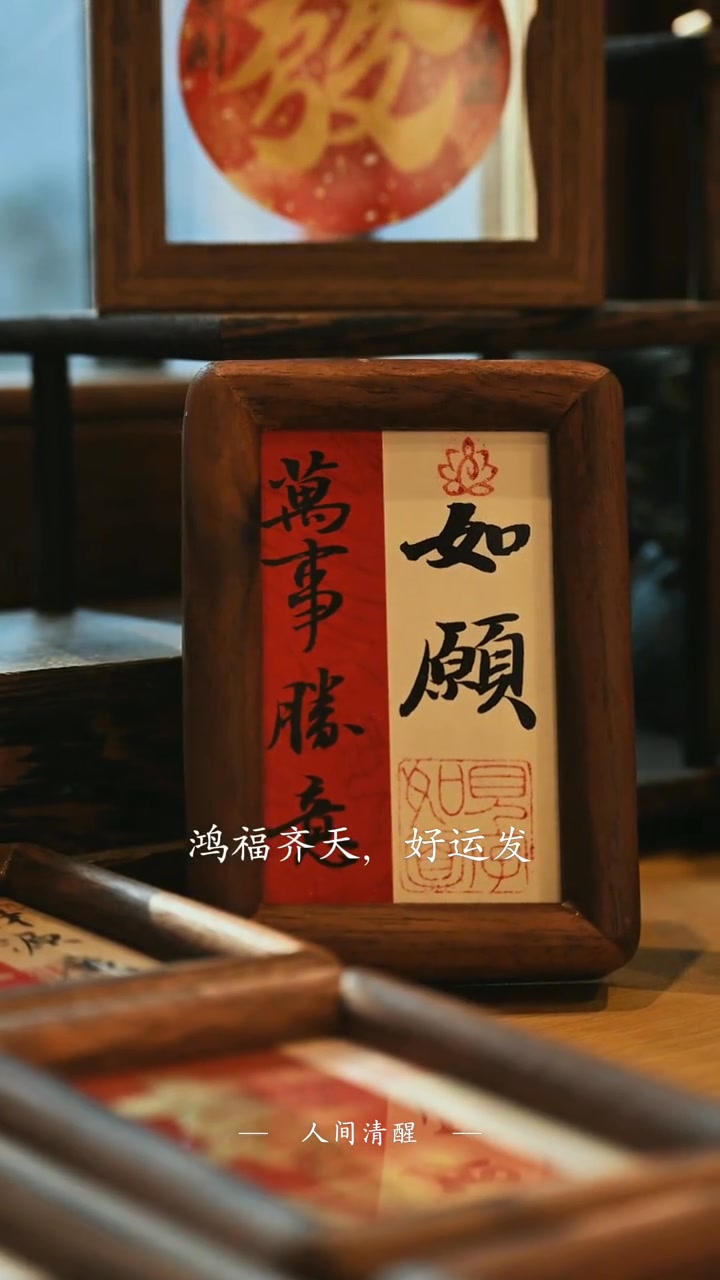 發
如願
萬事勝意
鸿福齐天，好运发
— 人间清醒 —